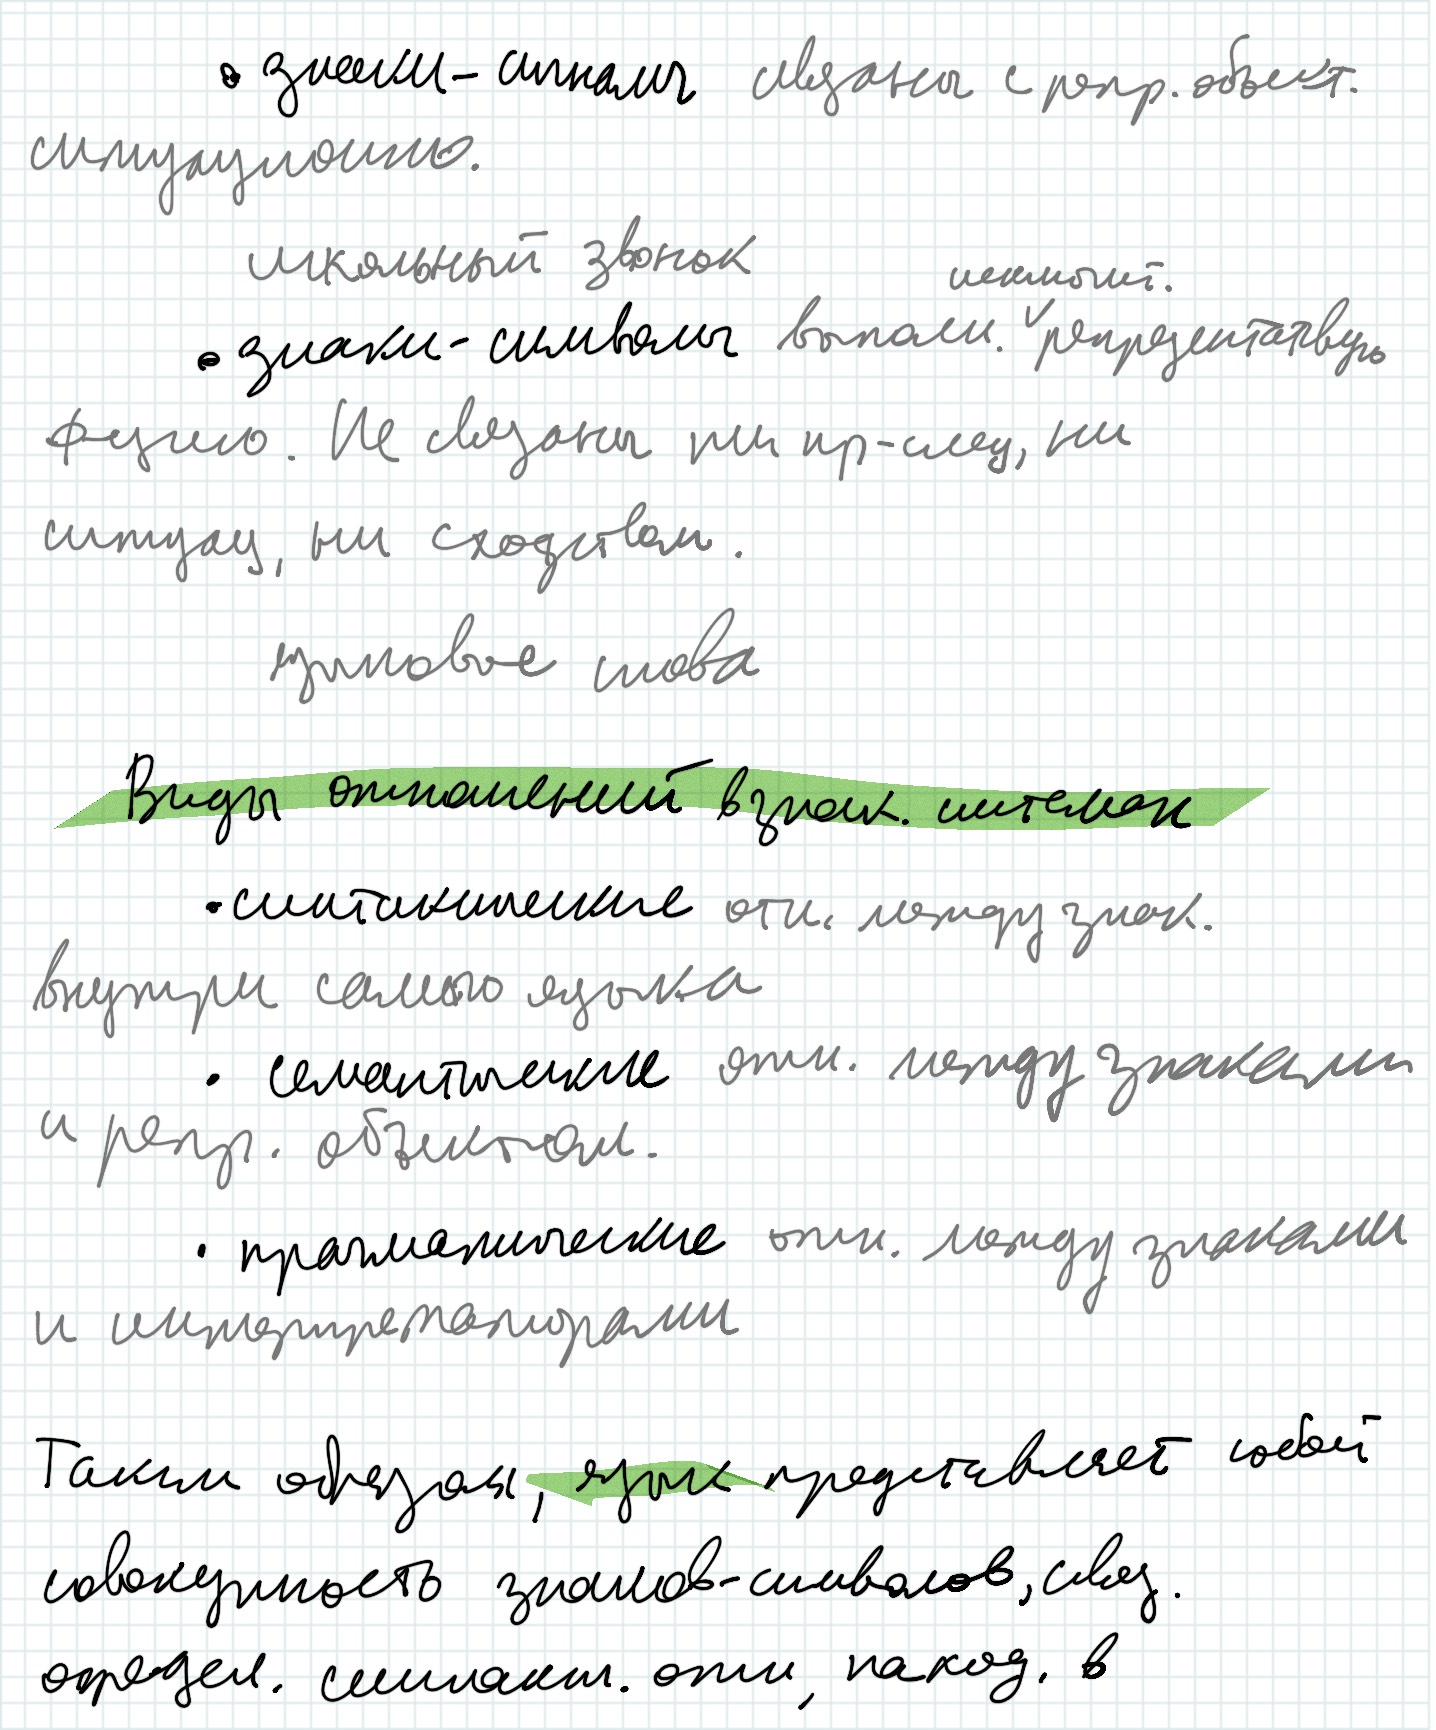 • знаки-сигналы связаны с репр. объект.
ситуационно.
школьный звонок
исключит.
• знаки-символы выполн. репрезентативную
функцию. Не связаны ни пр-след, ни
ситуац, ни сходством.
языковые слова
Виды отношений в знак. системах
• синтаксические отн. между знак.
внутри самого языка
• семантические отн. между знаками
и репр. объектом.
• прагматические отн. между знаками
и интерпретаторами
Таким образом, язык представляет собой
совокупность знаков-символов, связ.
определ. синтакт. отн, наход. в